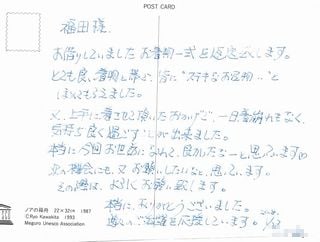 POST CARD
福田様
お借りしていました お着物一式を返却します。
とても良い着物と帯で、皆に"ステキなお着物…"と
ほめてもらえました。
又、上手に着せて頂いたおかげで、一日着崩れもなく、
気持ち良く過ごすことが出来ました。
本当に今回お世話になれて、良かったなーと思っています
次の機会にも、又お願いしたいなと、思っています。
その際は、よろしくお願い致します。
本当に、ありがとうございました。
応援しています。
ノアの箱舟 22×32cm 1987
©Ryo Kawakita 1993
Meguro Unesco Association